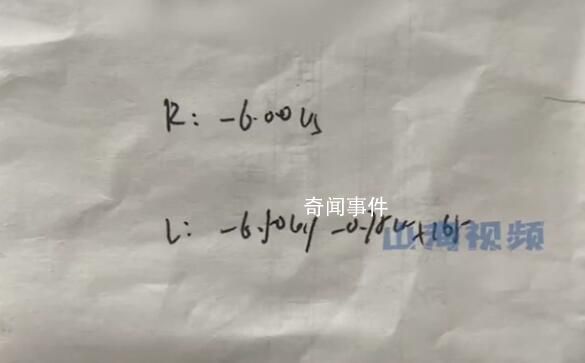 R: -6.00 DS
奇闻事件
L: -6.50 DS/ -0.75 DC × 165
山海视频